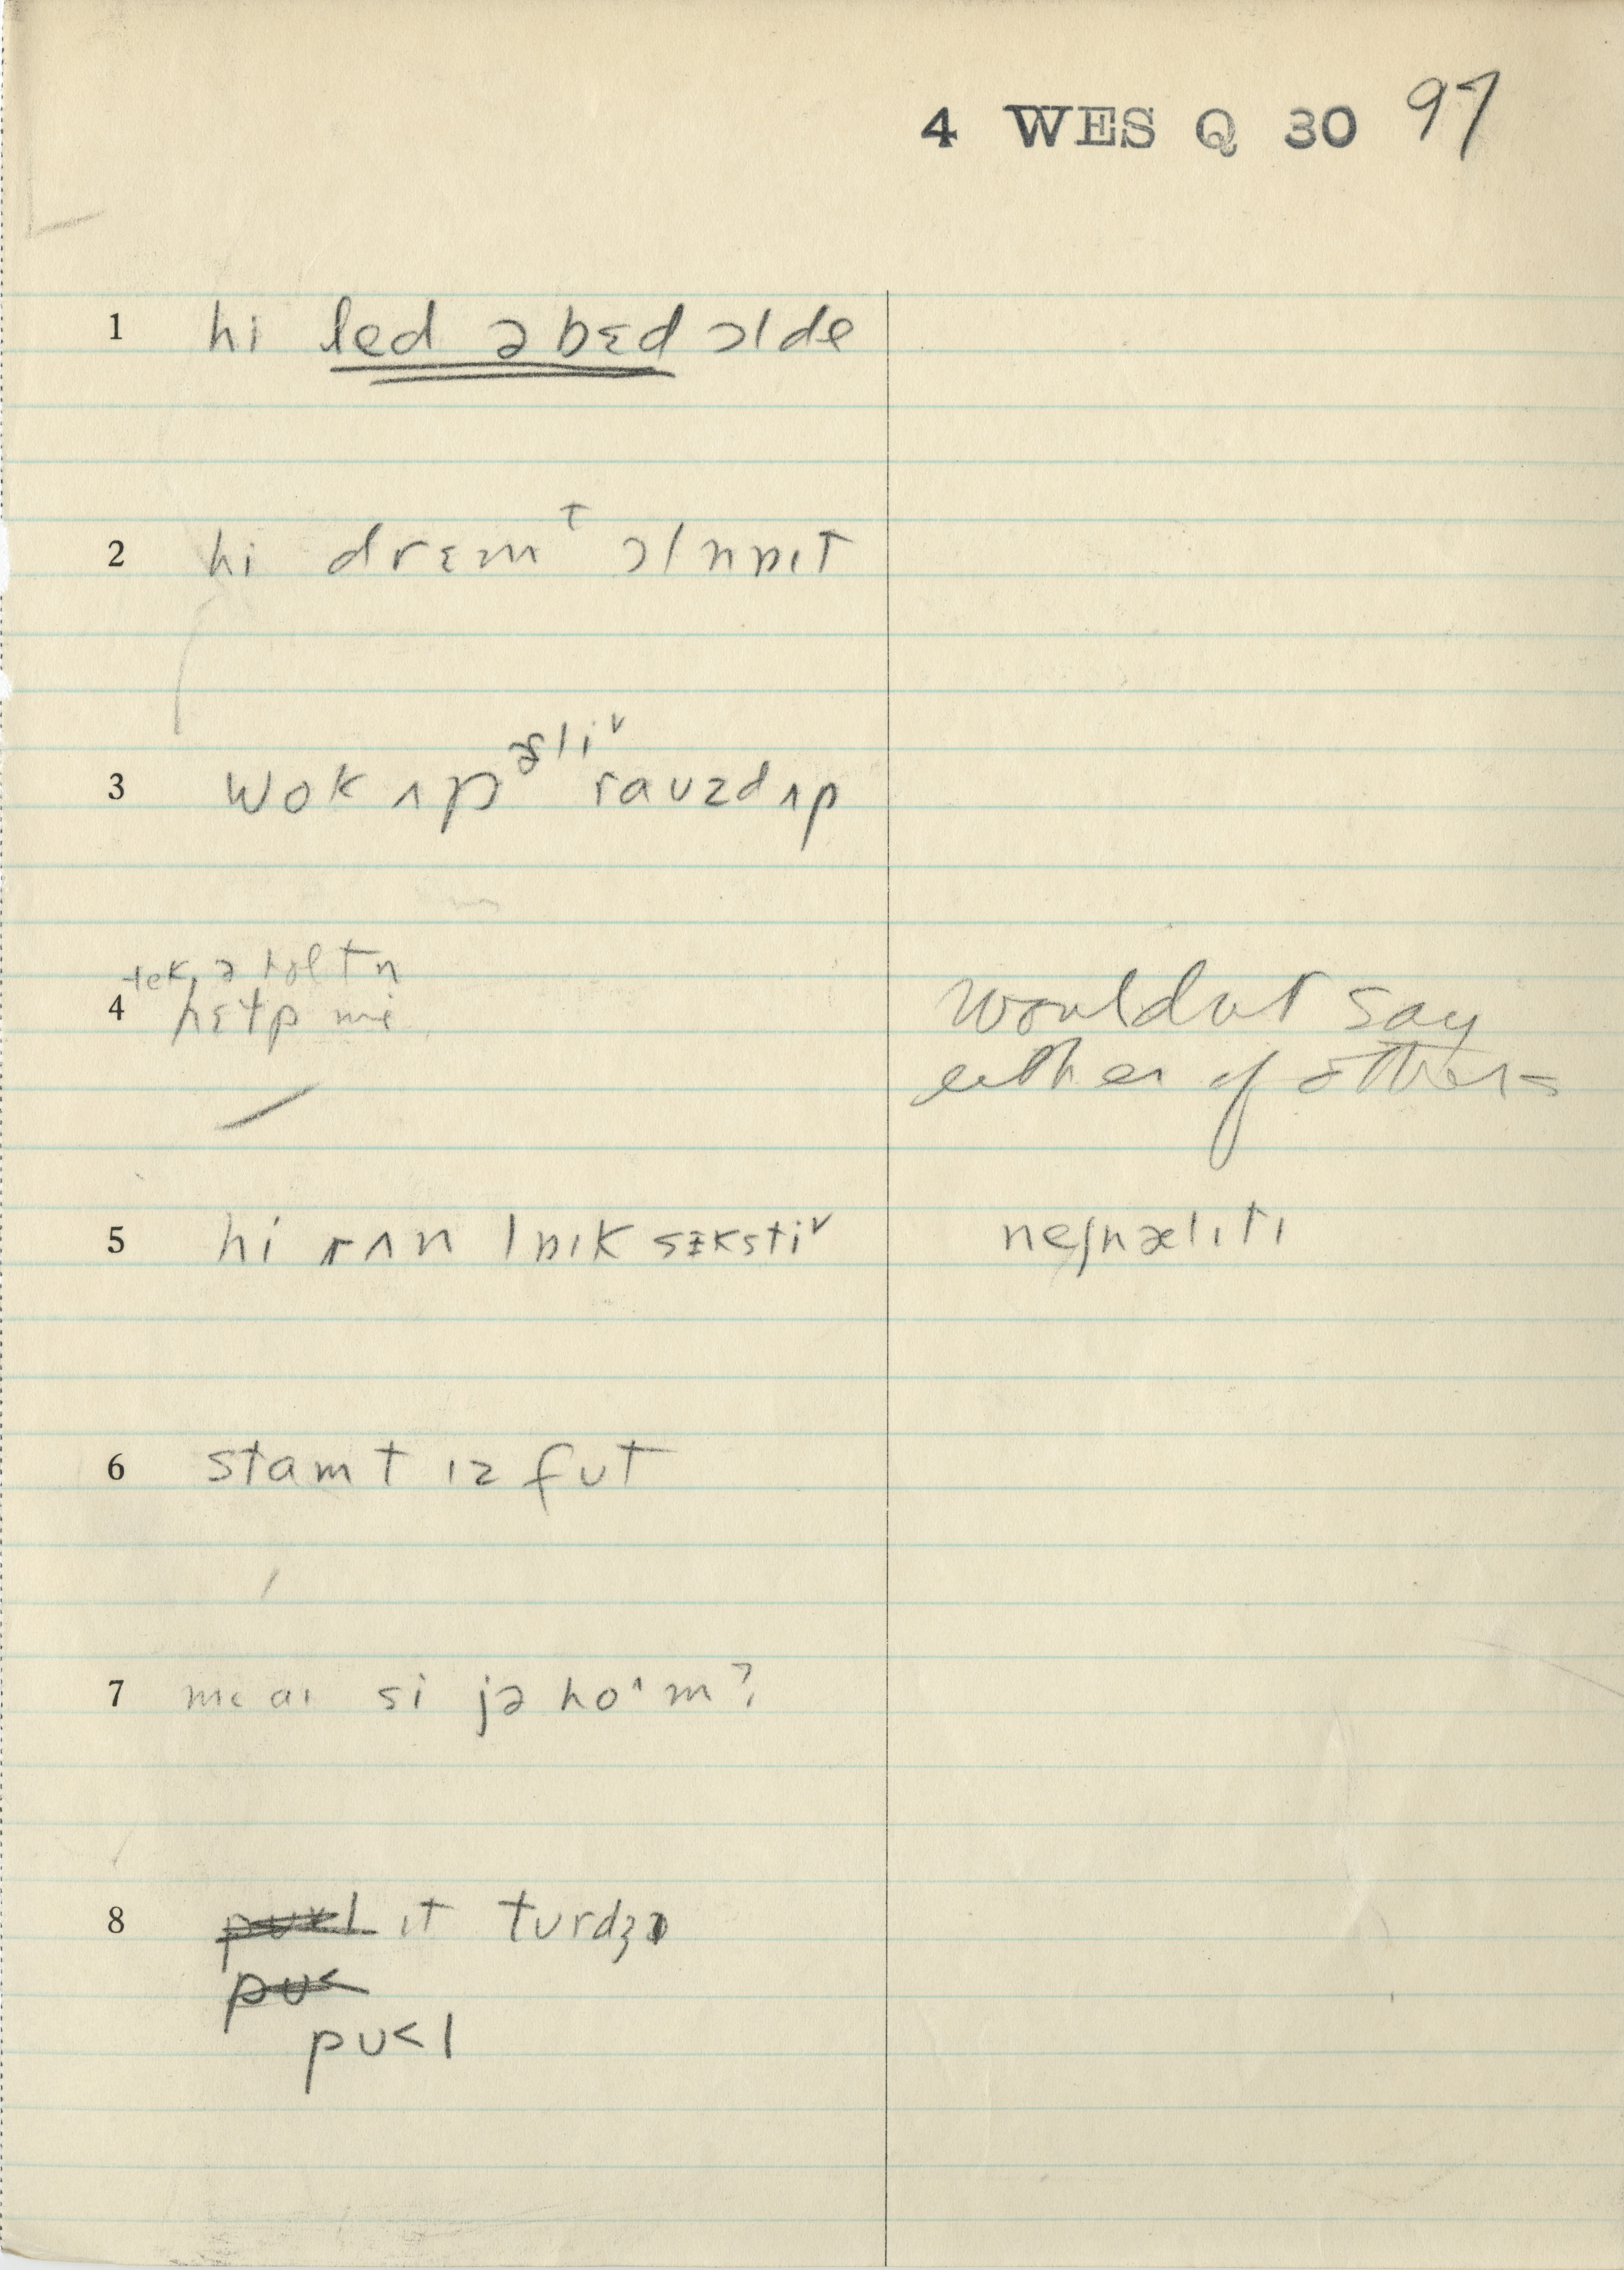 4 WES Q 30 97
1 hi led ə bɛd ɔlde
2 hi drɛmᵗ ɔlnɒɪt
3 wok ʌp ɚliᵛ raʊzd ʌp
tek ə
4 hɛɫp mi
wouldnt say
either of others
5 hi rʌn lɒɪk sɪkstiᵛ neʃnælɪtɪ
6 stamt ɪz fʊt
7 me aɪ si jə hoˑm?
8 ɪt tʊrdʒ
pʊ<l